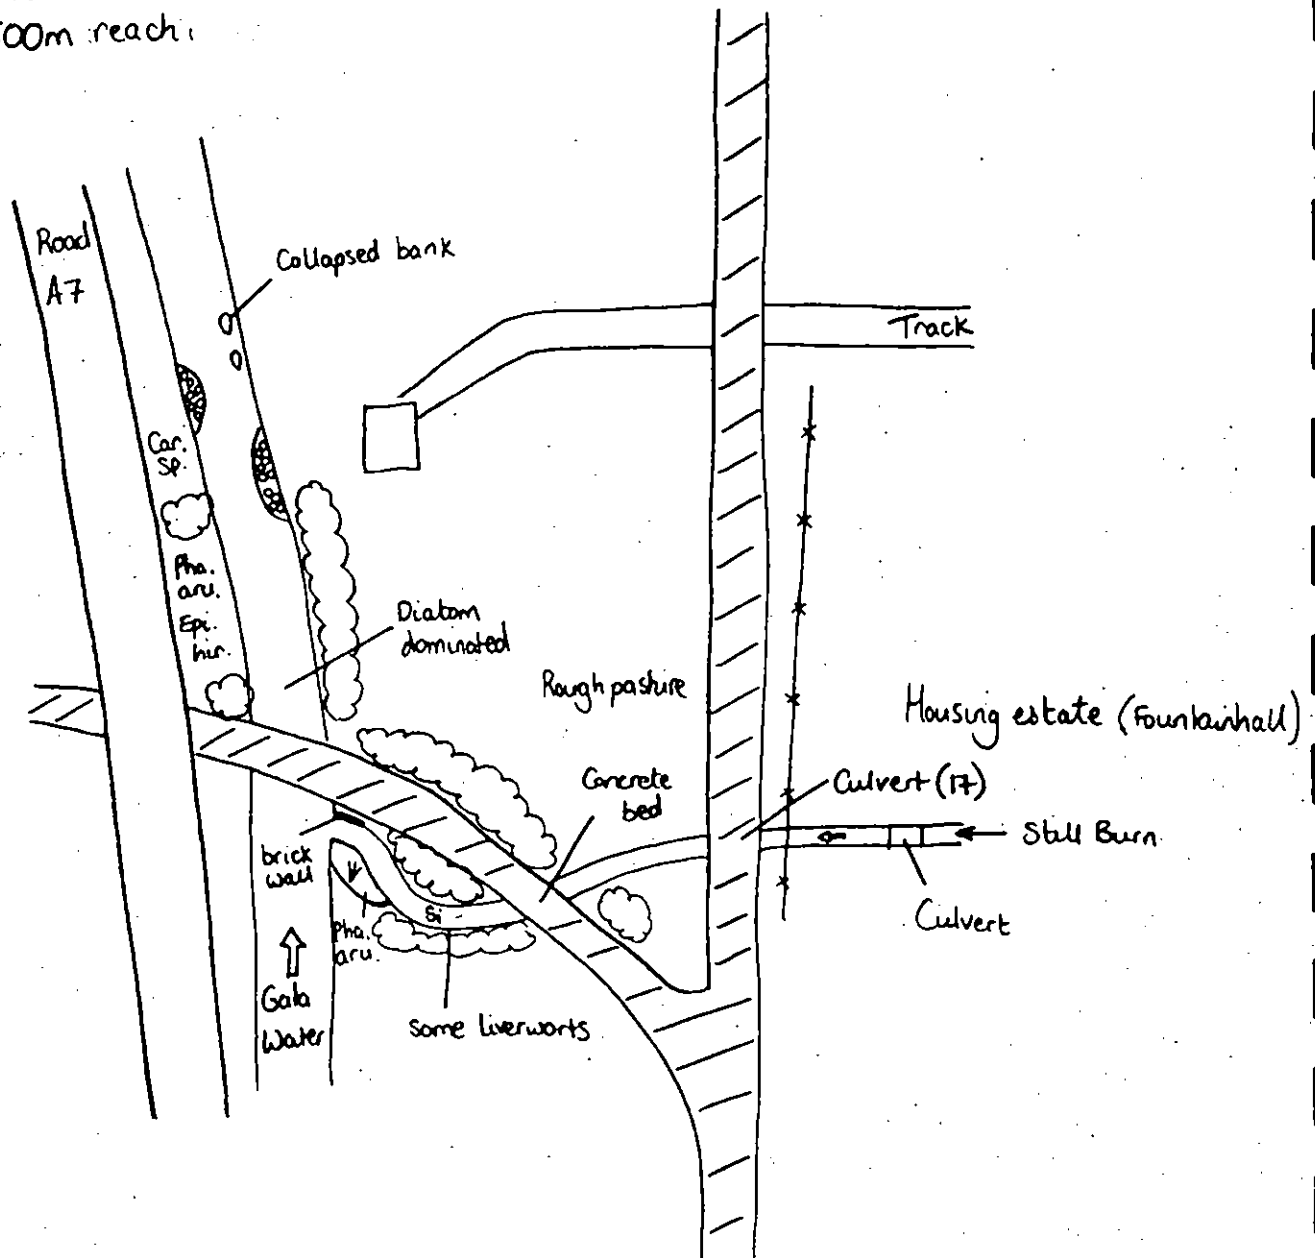 00m reach:
Road
A7
Collapsed bank
Track
Car.
sp.
Pha.
aru.
Epi.
hir.
Diatom
dominated
Rough pasture
Housing estate (Fountainhall)
Concrete
bed
Culvert (17)
Still Burn
brick
wall
Si
Culvert
Pha.
aru.
Gala
Water
Some liverworts